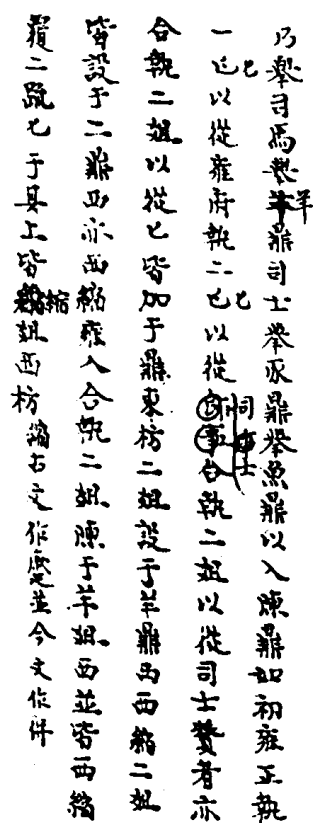 乃舉司馬舉羊鼎司士舉豕鼎舉魚鼎以入陳鼎如初雍正執
一匕以從雍府執二匕以從司士合執二俎以從司士贊者亦
合執二俎以從匕皆加于鼎東枋二俎設于羊鼎西西縮二俎
皆設于二鼎西亦西縮雍人合執二俎陳于羊俎西並皆西縮
覆二疏匕于其上皆縮俎西枋縮古文作蹙並今文作併